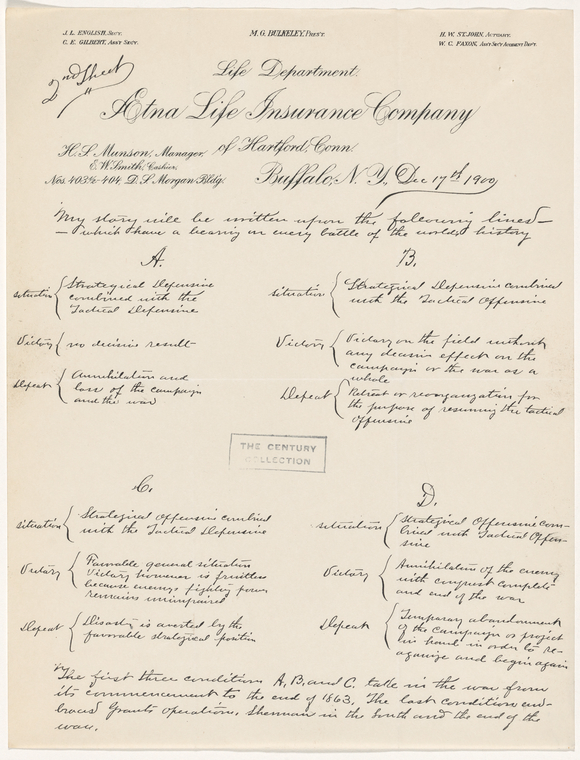 J. L. ENGLISH, SECY.
C. E. GILBERT, ASST SECY.
M. G. BULKELEY, PREST.
H. W. ST. JOHN, ACTUARY.
W. C. FAXON, ASST SECY ACCIDENT DEPT.
2nd Sheet
Life Department.
Ætna Life Insurance Company
of Hartford, Conn.
H. S. Munson, Manager.
E. W. Smith, Cashier.
Nos. 403½-404, D. S. Morgan Bldg.
Buffalo, N. Y., Dec 17th 1900
My story will be written upon the following lines—
— which have a bearing on every battle of the worlds history
A.
Situation { Strategical Defensive
combined with the
Tactical Defensive
Victory { no decisive result
Defeat { Annihilation and
loss of the campaign
and the war
B.
Situation { Strategical Defensive combined
with the Tactical Offensive
Victory { Victory on the field without
any decisive effect on the
campaign or the war as a
whole
Defeat { Retreat or reorganization for
the purpose of resuming the tactical
offensive
THE CENTURY
COLLECTION
C.
Situation { Strategical Offensive combined
with the Tactical Defensive
Victory { Favorable general situation
Victory however is fruitless
because enemys fighting power
remains unimpaired
Defeat { Disaster is averted by the
favorable strategical position
D.
Situation { Strategical Offensive com-
bined with Tactical Offen-
sive
Victory { Annihilation of the enemy
with conquest complete
and end of the war
Defeat { Temporary abandonment
of the campaign or project
in hand in order to re-
organize and begin again
The first three conditions A, B, and C. take in the war from
its commencement to the end of 1863. The last condition em-
braces Grants operations, Sherman in the South and the end of the
war.